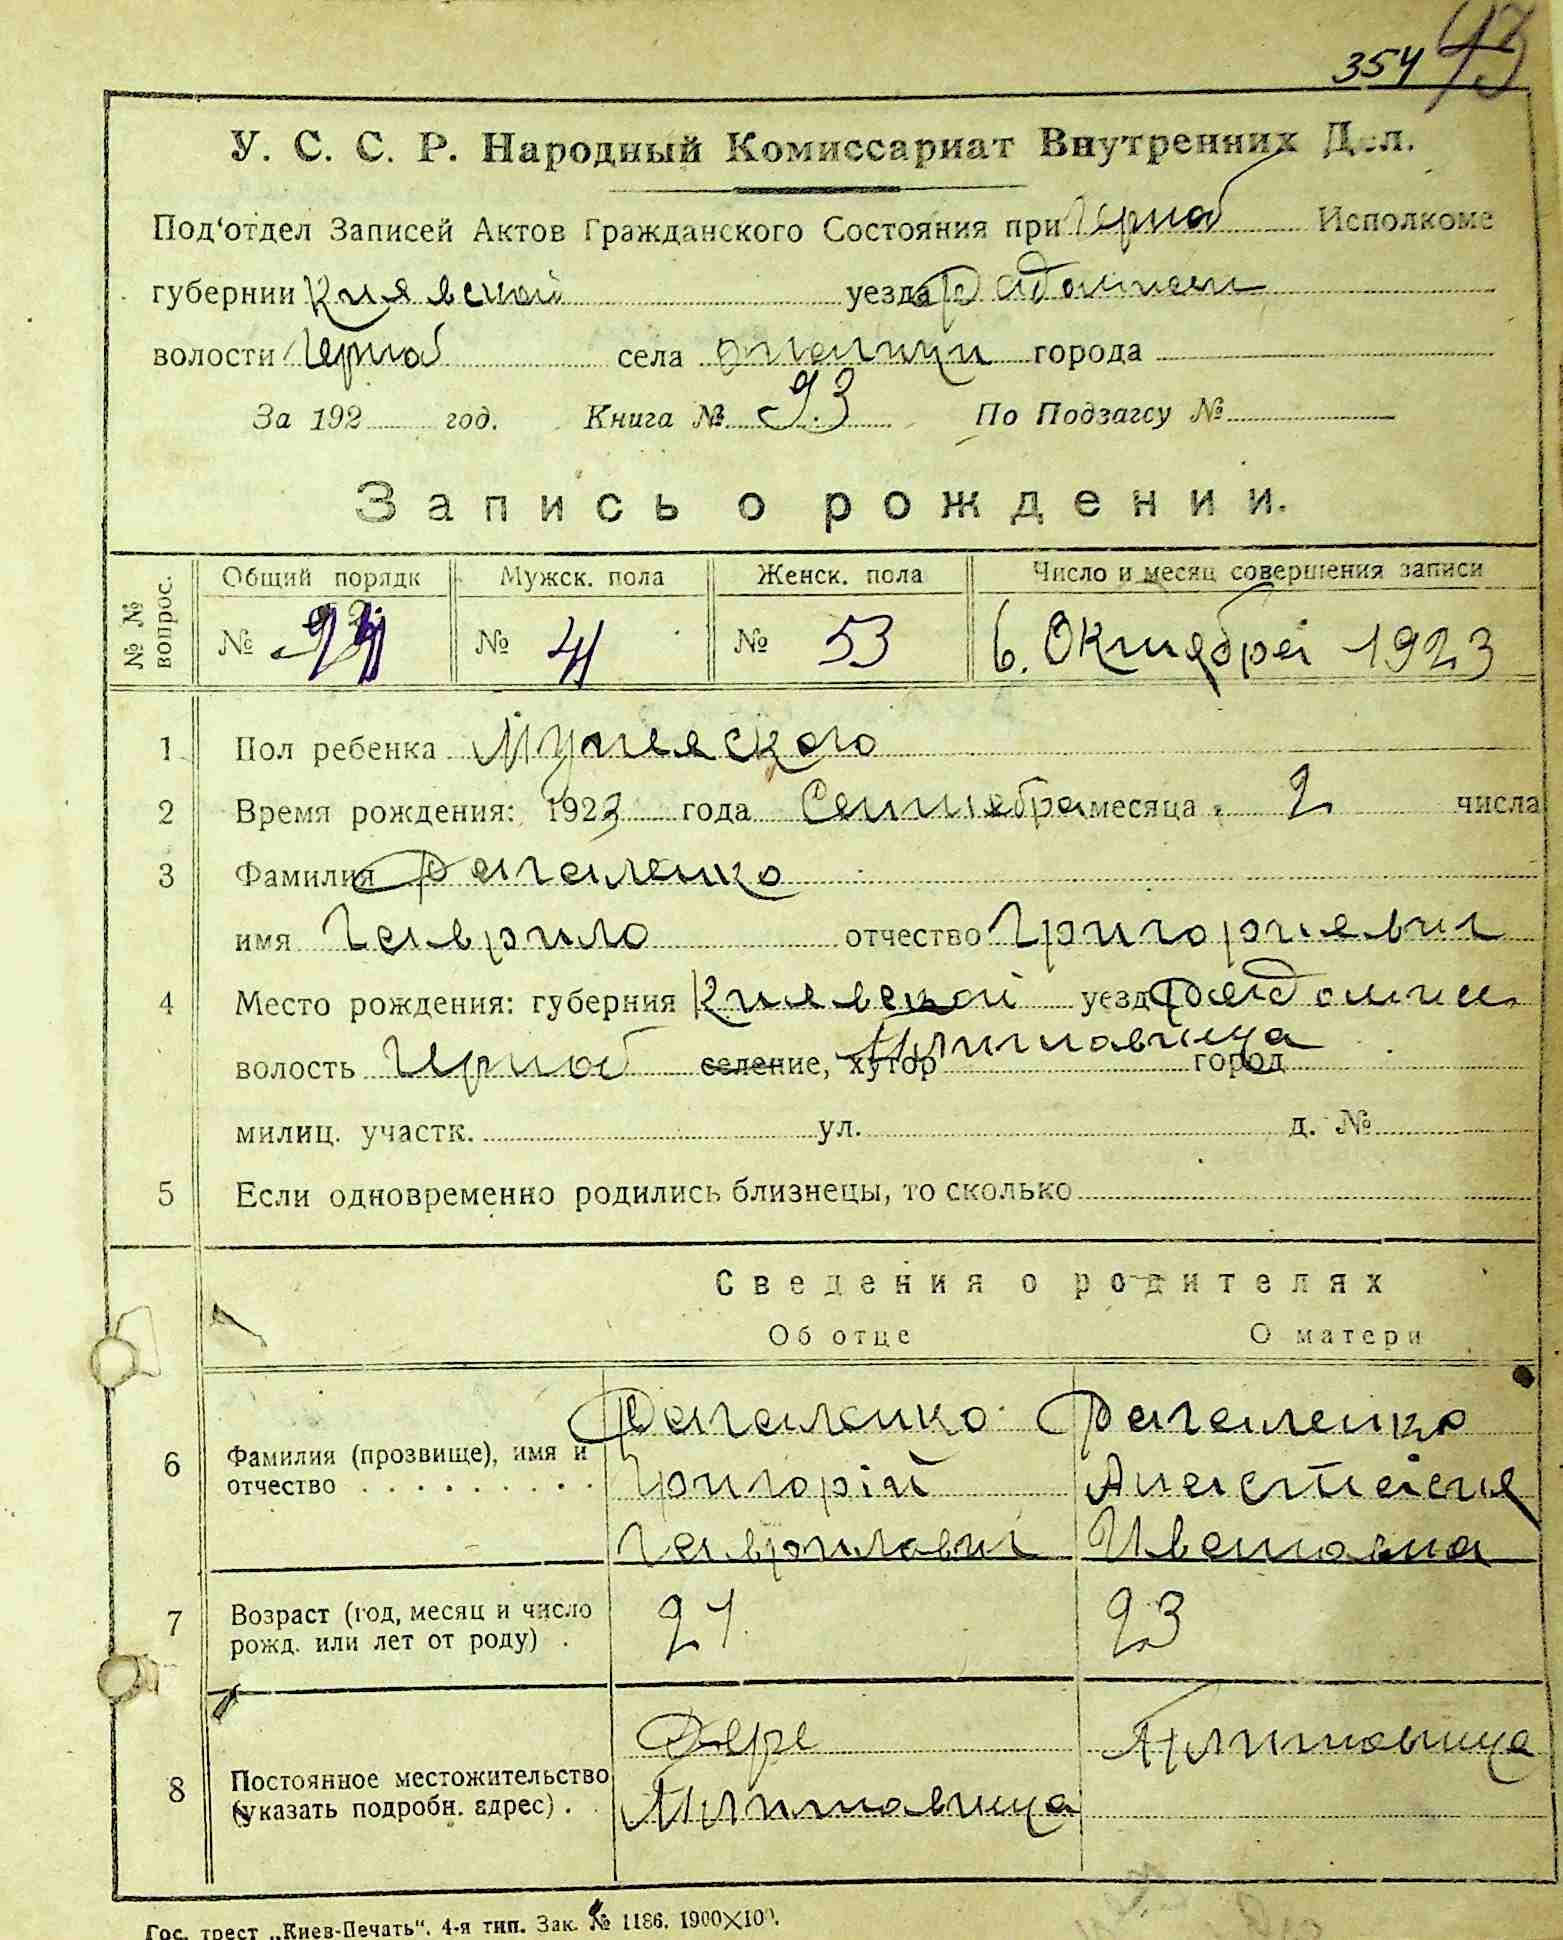 354 43
У. С. С. Р. Народный Комиссариат Внутренних Дел.
Под‘отдел Записей Актов Гражданского Состояния при Черноб Исполкоме
губернии Киявской уезда Радомысл
волости Черноб села города
За 192 год. Книга № 93 По Подзагсу №
Запись о рождении.
№ № вопрос. Общий порядк Мужск. пола Женск. пола Число и месяц совершения записи
№ № 41 № 53 6. Октября 1923
1 Пол ребенка Мужеского
2 Время рождения: 1923 года Сентебра месяца 2 числа
3 Фамилия
имя Гаврило отчество Григориевич
4 Место рождения: губерния Киявской уезд
волость Черноб селение, хутор город
милиц. участк. ул. д. №
5 Если одновременно родились близнецы, то сколько
Сведения о родителях
Об отце О матери
6 Фамилия (прозвище), имя и отчество
Григорій Анастасия
Гаврилович Ивановна
7 Возраст (год, месяц и число рожд. или лет от роду) 21 23
8 Постоянное местожительство (указать подробн. адрес)
Гос. трест „Киев-Печать“. 4-я тип. Зак. № 1186. 1900X100.